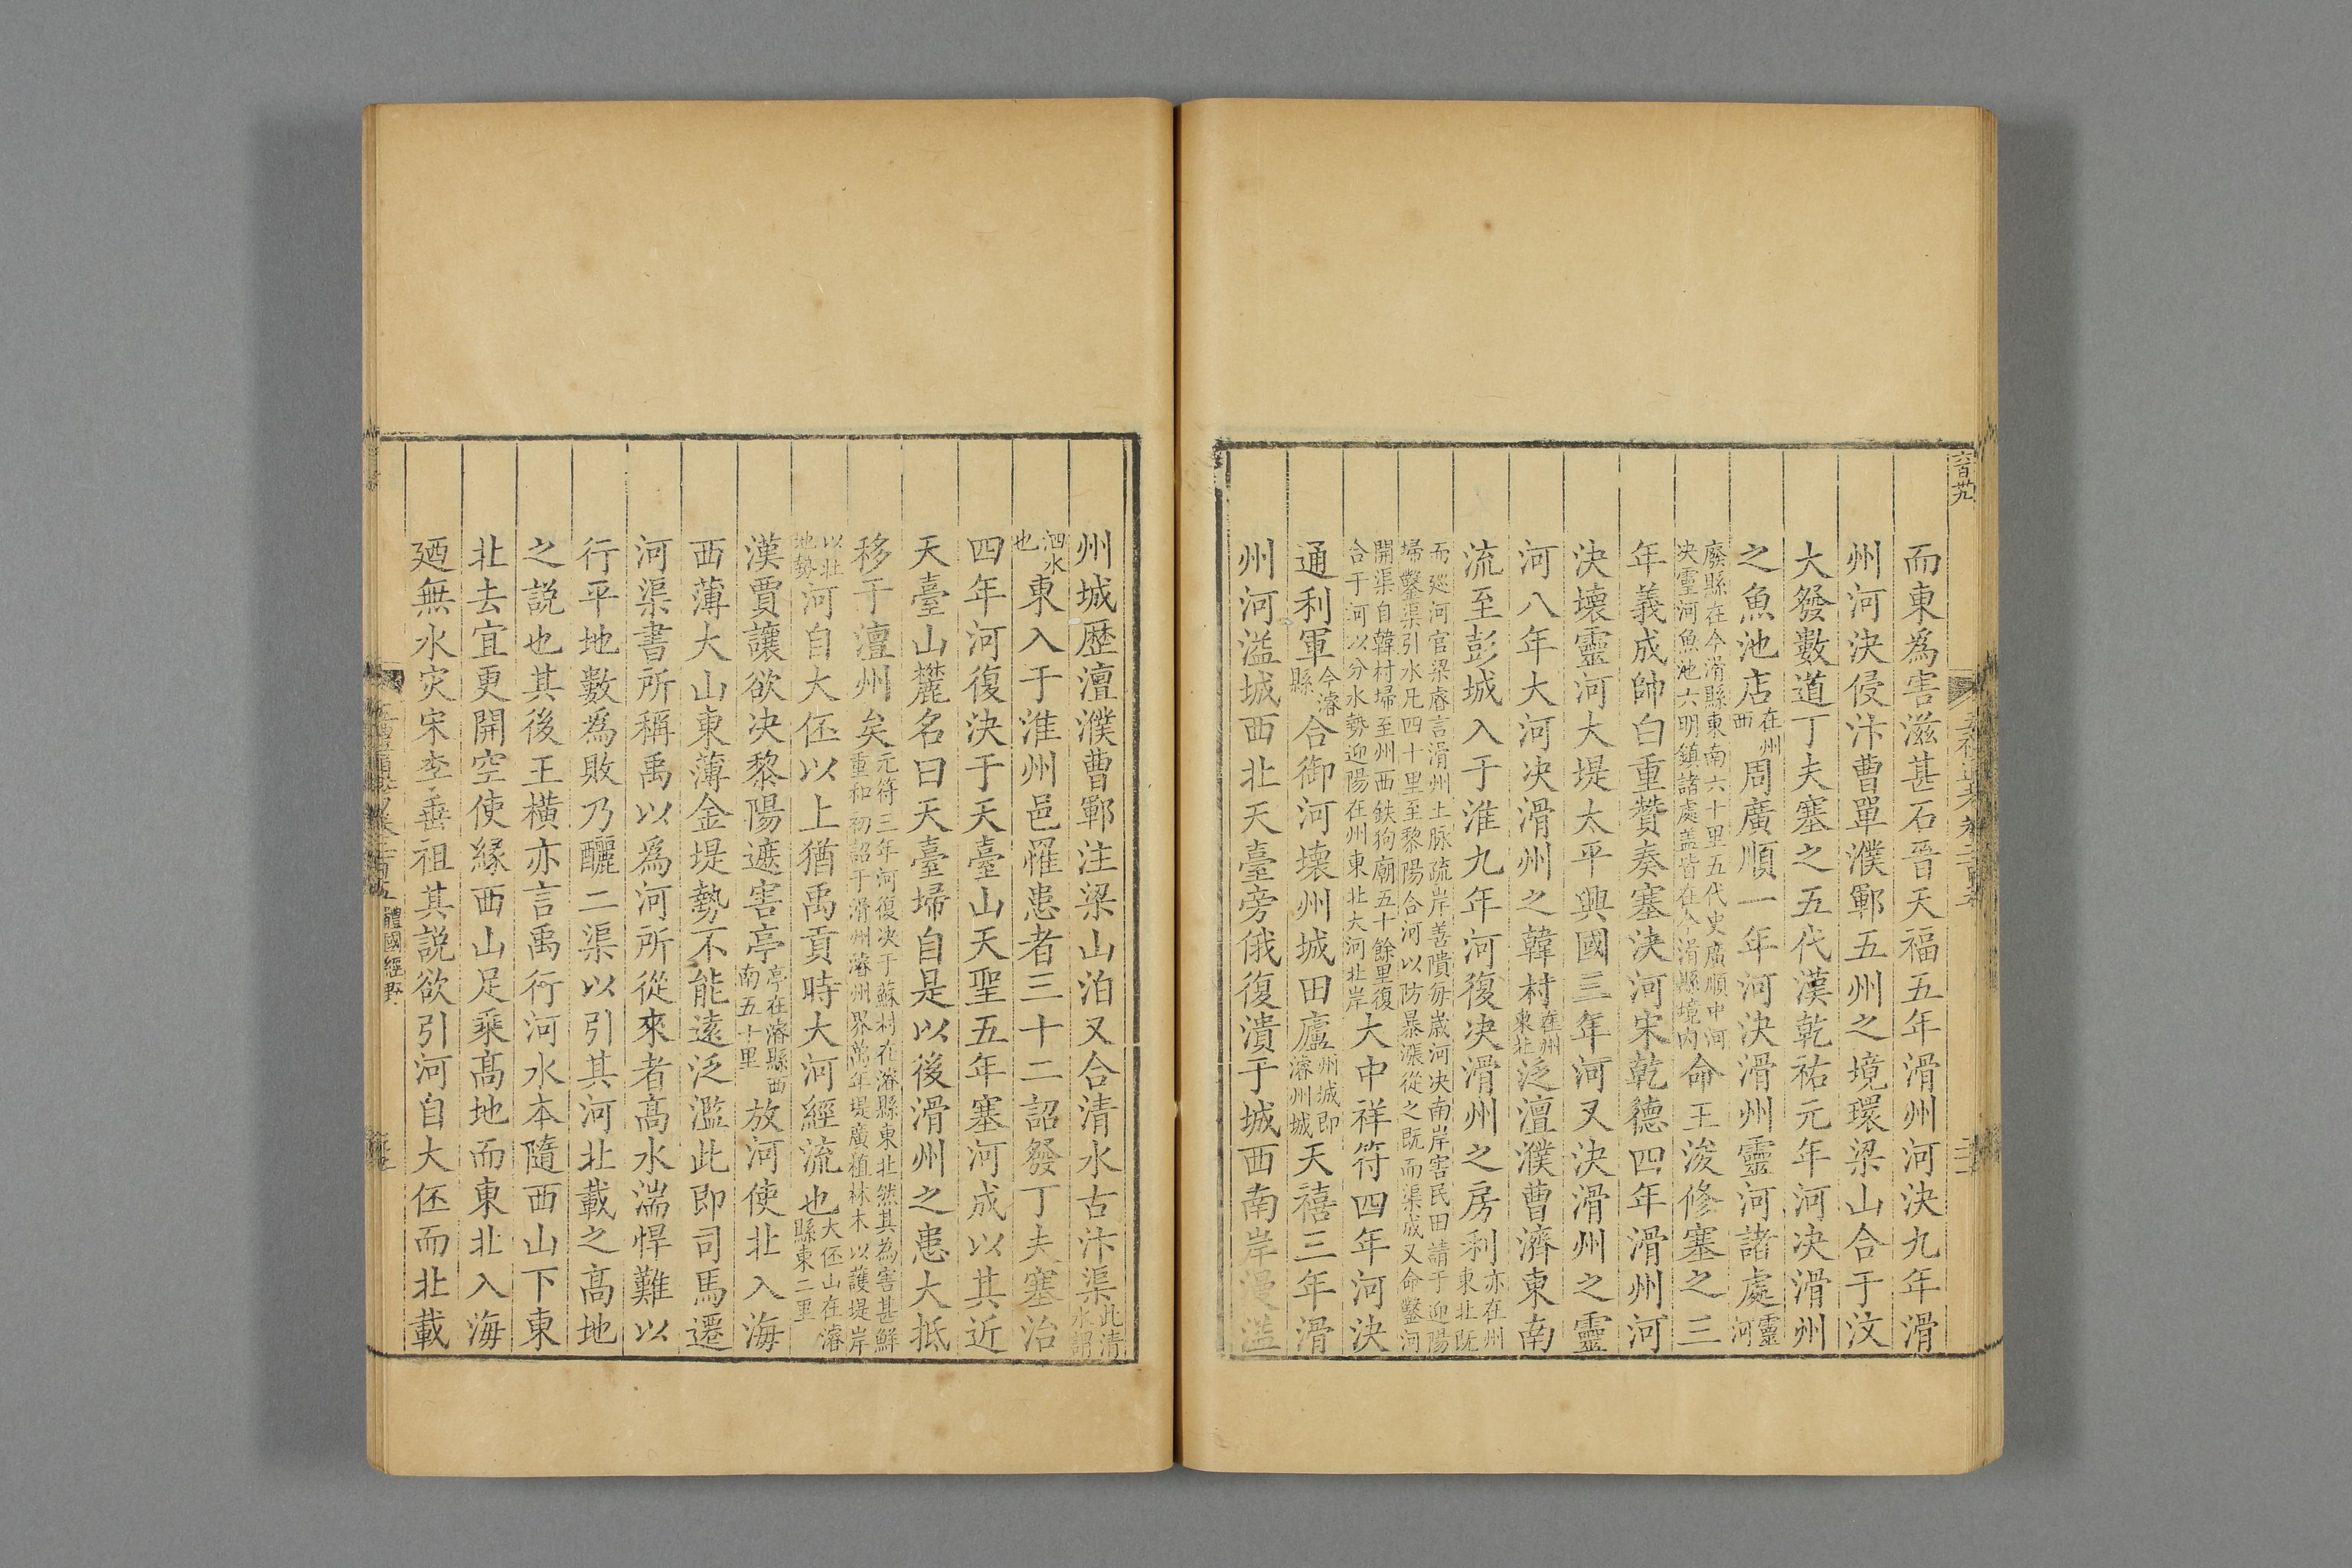 六百九
而東爲害滋甚石晉天福五年滑州河決九年滑
州河決侵汴曹單濮鄆五州之境環梁山合于汶
大發數道丁夫塞之五代漢乾祐元年河决滑州
之魚池店在州西周廣順一年河決滑州靈河諸處靈河
廢縣在今滑縣東南六十里五代史廣順中河
决靈河魚池六明鎮諸處盖皆在今滑縣境内命王浚修塞之三
年義成帥白重贊奏塞決河宋乾德四年滑州河
決壞靈河大堤太平興國三年河又決滑州之靈
河八年大河决滑州之韓村在州東北泛澶濮曹濟東南
流至彭城入于淮九年河復决滑州之房利亦在州東北既
而廵河官梁睿言滑州土脉疏岸善隤每歲河决南岸害民田請于迎陽
埽鑿渠引水凡四十里至黎陽合河以防暴漲從之既而渠成又命鑿河
開渠自韓村埽至州西鉄狗廟五十餘里復
合于河以分水勢迎陽在州東北大河北岸大中祥符四年河決
通利軍今濬縣合御河壞州城田廬州城即濬州城天禧三年滑
州河溢城西北天臺旁俄復潰于城西南岸漫溢
州城歷澶濮曹鄆注梁山泊又合清水古汴渠此清水謂
泗水也東入于淮州邑罹患者三十二詔發丁夫塞治
四年河復決于天臺山天聖五年塞河成以其近
天臺山麓名曰天臺埽自是以後滑州之患大抵
移于澶州矣元符三年河復决于蘇村在濬縣東北然其為害甚鮮
重和初詔于滑州濬州界萬年堤廣植林木以護堤岸
以壯地勢河自大伾以上猶禹貢時大河經流也大伾山在濬縣東二里
漢賈讓欲决黎陽遮害亭亭在濬縣西南五十里放河使北入海
西薄大山東薄金堤勢不能遠泛濫此即司馬遷
河渠書所稱禹以爲河所從來者髙水湍悍難以
行平地數爲敗乃釃二渠以引其河北載之髙地
之説也其後王横亦言禹行河水本隨西山下東
北去宜更開空使緣西山足乘髙地而東北入海
廼無水灾宋李垂祖其説欲引河自大伾而北載
體國經野